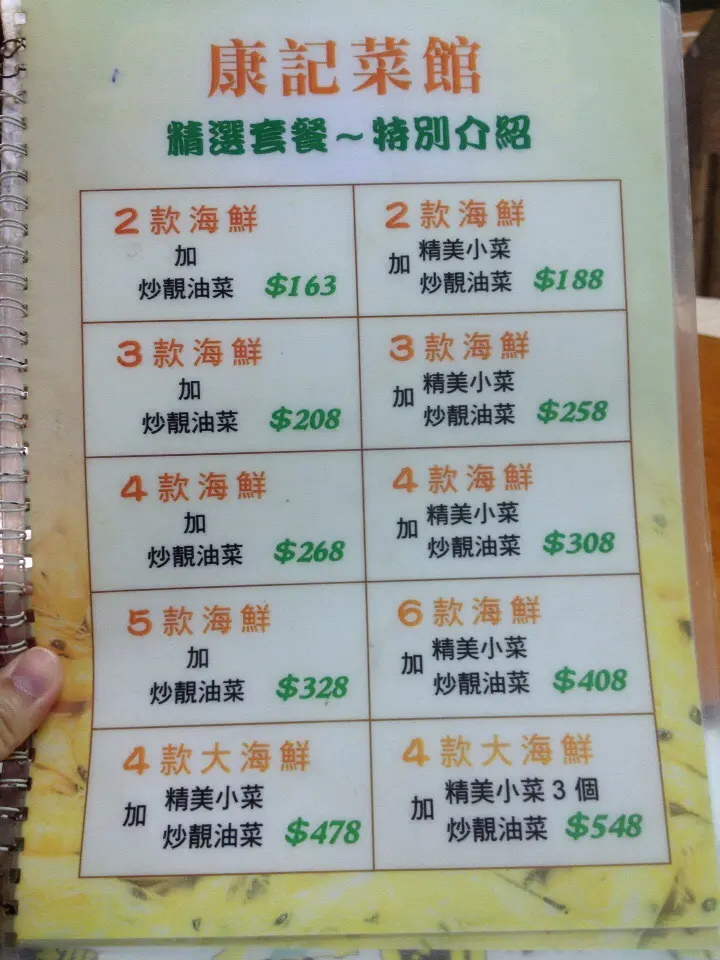 康記菜館
精選套餐～特別介紹
2款海鮮
加
炒靚油菜 $163
2款海鮮
加 精美小菜
炒靚油菜 $188
3款海鮮
加
炒靚油菜 $208
3款海鮮
加 精美小菜
炒靚油菜 $258
4款海鮮
加
炒靚油菜 $268
4款海鮮
加 精美小菜
炒靚油菜 $308
5款海鮮
加
炒靚油菜 $328
6款海鮮
加 精美小菜
炒靚油菜 $408
4款大海鮮
加 精美小菜
炒靚油菜 $478
4款大海鮮
加 精美小菜3個
炒靚油菜 $548